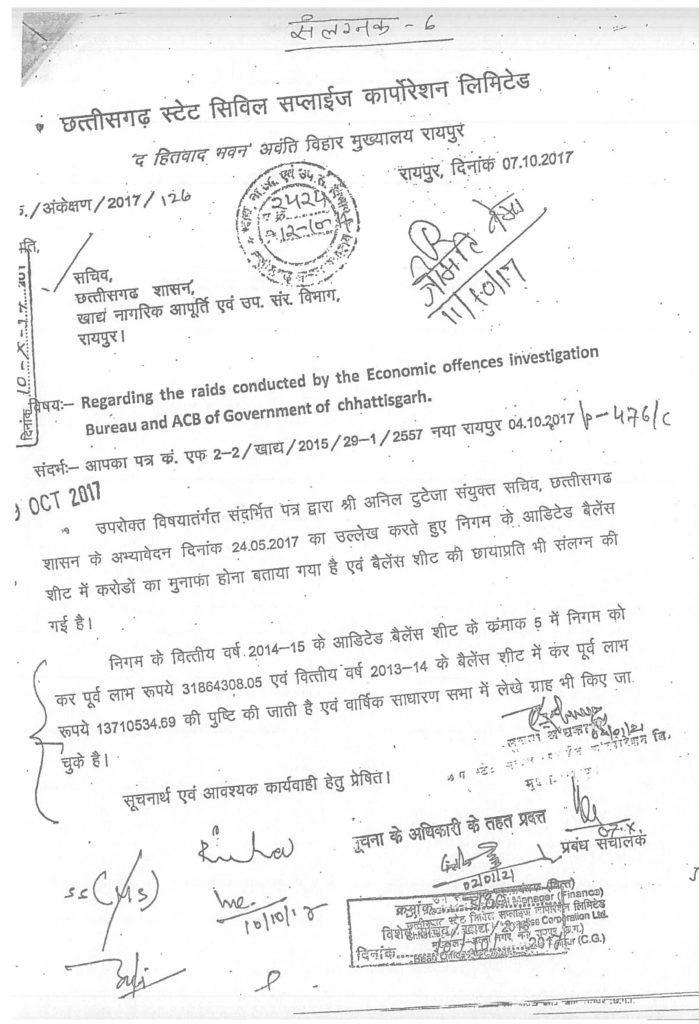 संलग्नक - 6
छत्तीसगढ़ स्टेट सिविल सप्लाईज कार्पोरेशन लिमिटेड
'द हितवाद भवन' अवंति विहार मुख्यालय रायपुर
/अंकेक्षण/2017/126
रायपुर, दिनांक 07.10.2017
2424
12-10
11/10/17
सचिव,
छत्तीसगढ शासन,
खाद्य नागरिक आपूर्ति एवं उप. संर. विभाग,
रायपुर।
दिनांक 10-X-17
विषयः– Regarding the raids conducted by the Economic offences investigation
Bureau and ACB of Government of chhattisgarh.
संदर्भः– आपका पत्र कं. एफ 2-2/खाद्य/2015/29-1/2557 नया रायपुर 04.10.2017 p-476/c
OCT 2017
उपरोक्त विषयातंर्गत संदर्भित पत्र द्वारा श्री अनिल टुटेजा संयुक्त सचिव, छत्तीसगढ
शासन के अभ्यावेदन दिनांक 24.05.2017 का उल्लेख करते हुए निगम के आडिटेड बैलेंस
शीट में करोडों का मुनाफा होना बताया गया है एवं बैलेंस शीट की छायाप्रति भी संलग्न की
गई है।
निगम के वित्तीय वर्ष 2014-15 के आडिटेड बैलेंस शीट के कंमाक 5 में निगम को
कर पूर्व लाभ रूपये 31864308.05 एवं वित्तीय वर्ष 2013-14 के बैलेंस शीट में कर पूर्व लाभ
रूपये 13710534.69 की पुष्टि की जाती है एवं वार्षिक साधारण सभा में लेखे ग्राह भी किए जा
चुके है।
02/01/21
सूचनार्थ एवं आवश्यक कार्यवाही हेतु प्रेषित।
सूचना के अधिकारी के तहत प्रदत्त
07.X
प्रबंध संचालक
02/01/21
ss (MS)
10/10/17
क्रमांक
Manager (Finance)
स्टेट सिविल सप्लाईज
Corporation Ltd.
दिनांक
2017
(C.G.)